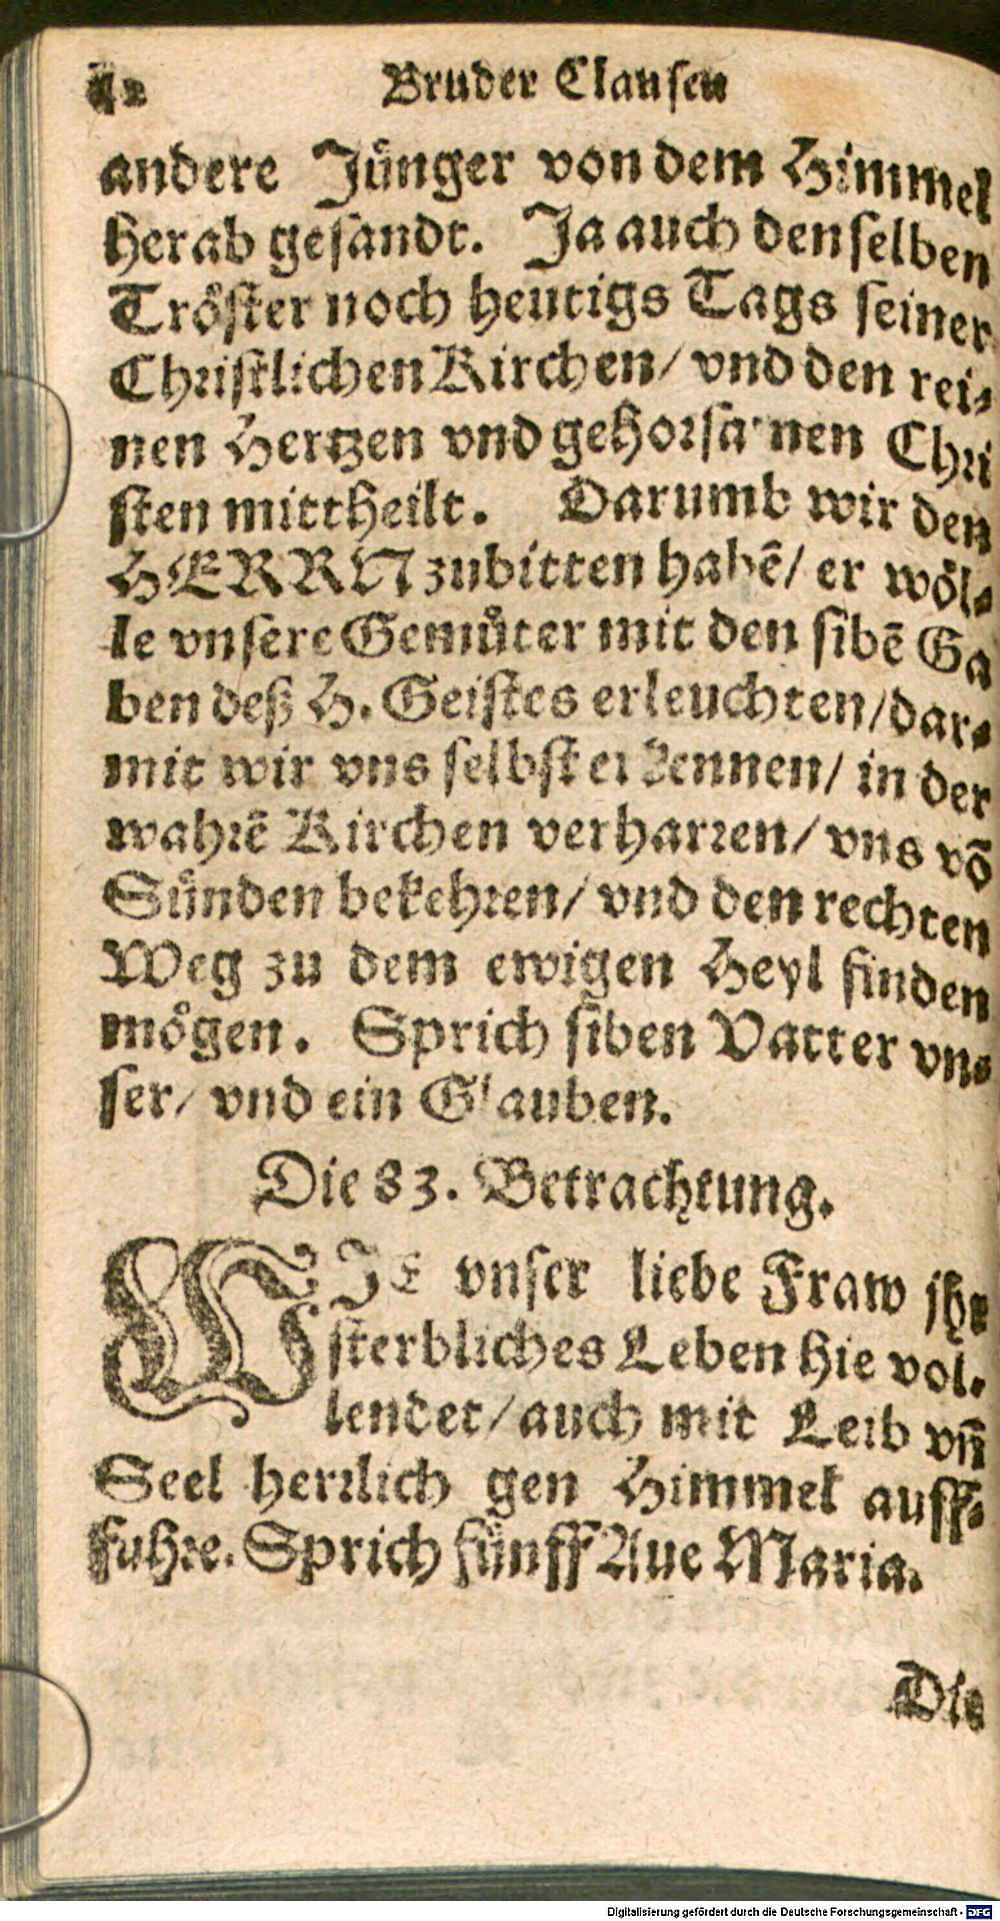 Bruder Clausen
andere Jünger von dem Himmel
herab gesandt. Ja auch denselben
Tröster noch heutigs Tags seiner
Christlichen Kirchen/ vnd den rei-
nen Hertzen vnd gehorsamen Chri
sten mittheilt. Darumb wir den
HERRN zubitten habẽ/ er wöl-
le vnsere Gemüter mit den sibẽ Ga
ben deß H. Geistes erleuchten/ dar-
mit wir vns selbst erkennen/ in der
wahrẽ Kirchen verharren/ vns võ
Sünden bekehren/ vnd den rechten
Weg zu dem ewigen Heyl finden
mögen. Sprich siben Vatter vn-
ser/ vnd ein Glauben.
Die 83. Betrachtung.
WIE vnser liebe Fraw jhr
sterbliches Leben hie vol-
lendet/ auch mit Leib vñ
Seel herrlich gen Himmel auff-
fuhre. Sprich fünff Aue Maria.
Die
Digitalisierung gefördert durch die Deutsche Forschungsgemeinschaft - DFG